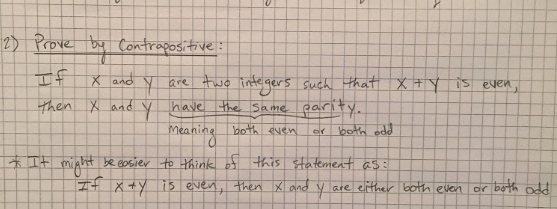 2) Prove by Contrapositive:
If x and y are two integers such that x + y is even,
then x and y have the same parity.
meaning both even or both odd
* It might be easier to think of this statement as:
If x + y is even, then x and y are either both even or both odd